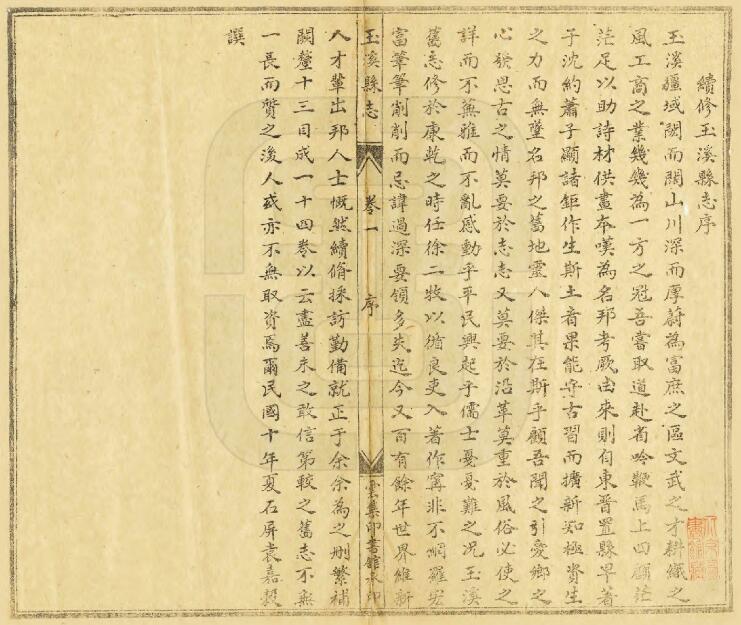 續修玉溪縣志序
玉溪疆域闊而闊山川深而厚蔚為富庶之區文武之才耕織之
風工商之業幾幾為一方之冠吾嘗取道赴省吟鞭馬上四顧茫
茫足以助詩材供畫本嘆為名邦考厥由來則自東晉置縣早著
子沈約蕭子顯諸鉅作生斯土者果能守古習而擴新知極資生
之力而無墮名邦之舊地靈人傑其在斯乎顧吾聞之引愛鄉之
心發思古之情莫要於志志又莫要於沿革莫重於風俗必使之
詳而不蕪雅而不亂感動乎平民興起乎儒士憂憂難之况玉溪
舊志修於康乾之時任徐二牧以循良吏入著作寗非不網羅宏
富筆筆削削而忌諱過深要領多失迄今又百有餘年世界維新
玉溪縣志 卷一 序 雲集印書館承印
人才輩出邦人士慨然續脩採訪勤備就正于余余為之刪繁補
闕釐十三目成一十四卷以云盡善未之敢信第較之舊志不無
一長而贊之後人或亦不無取資焉爾民國十年夏石屏袁嘉穀
譔